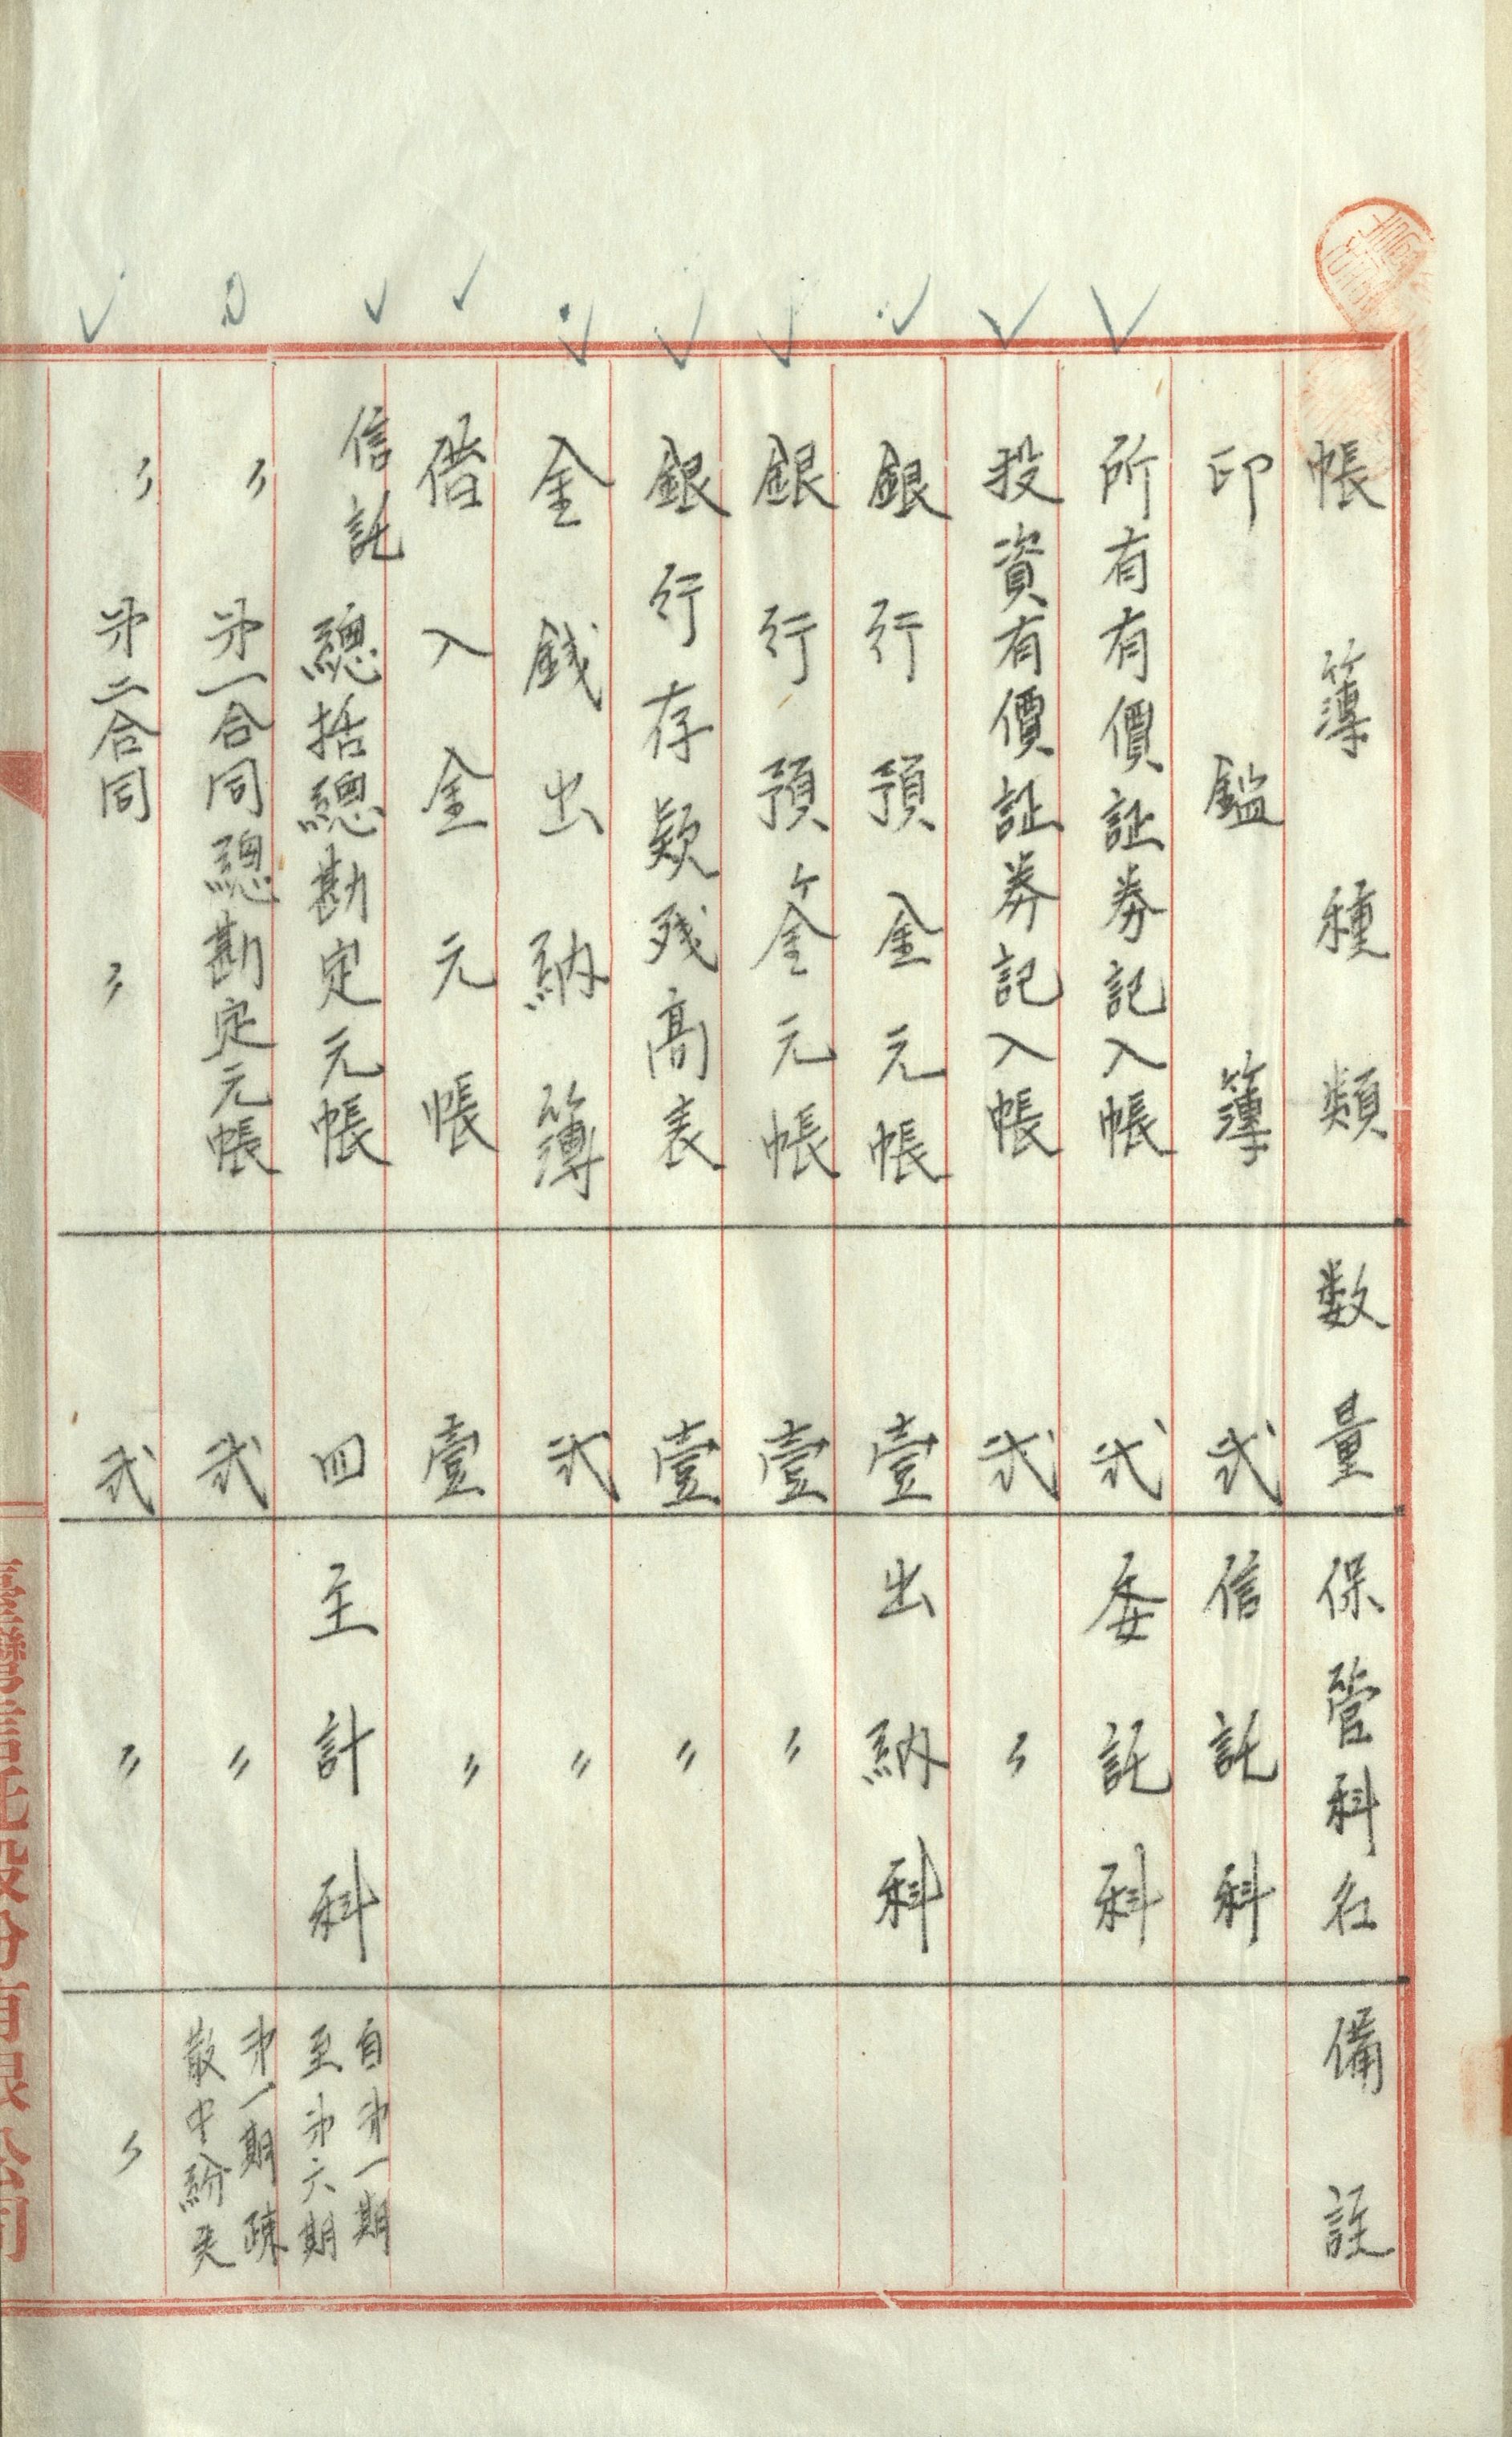 帳簿種類 数量 保管科名 備註
印鑑簿 弐 信託科
所有有價証券記入帳 弐 委託科
投資有價証券記入帳 弐 〃
銀行預金元帳 壹 出納科
銀行預金元帳 壹 〃
銀行存款残高表 壹 〃
金銭出納簿 弐 〃
借入金元帳 壹 〃
信託總括總勘定元帳 四 主計科 自第一期至第六期
〃 第一合同總勘定元帳 弐 〃 第一期疎散中紛失
〃 第二合同 〃 弐 〃 〃
臺灣信託股份有限公司